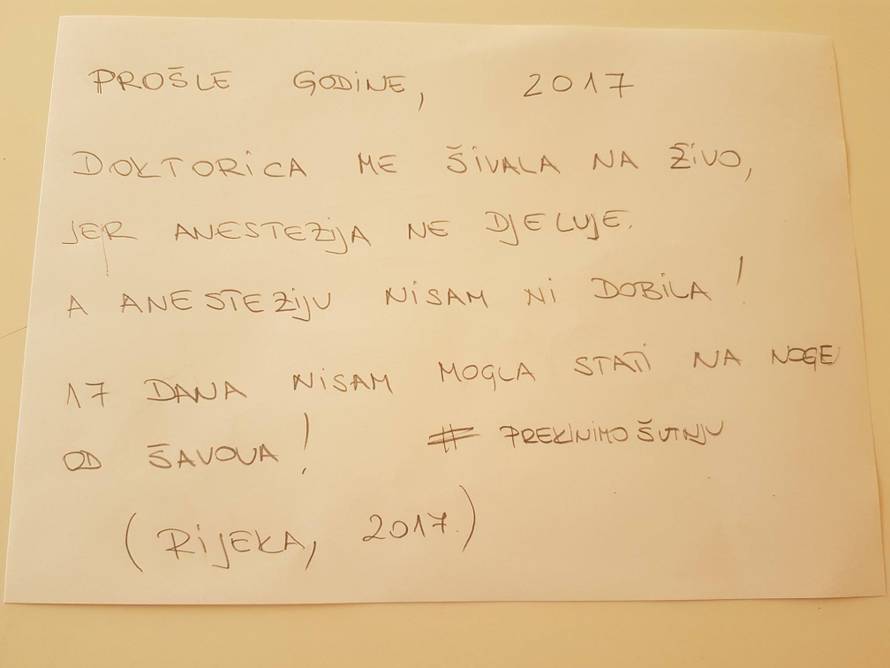 PROŠLE GODINE, 2017
DOKTORICA ME ŠIVALA NA ŽIVO,
JER ANESTEZIJA NE DJELUJE.
A ANESTEZIJU NISAM NI DOBILA!
17 DANA NISAM MOGLA STATI NA NOGE
OD ŠAVOVA! # PREKINIMOŠUTNJU
(RIJEKA, 2017.)